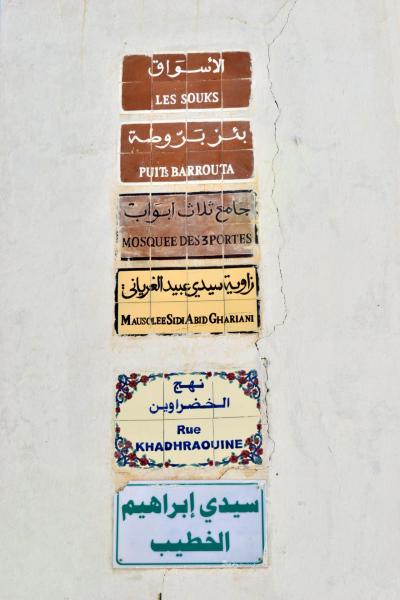 الأسواق
LES SOUKS
بئر بروطة
PUITS BARROUTA
جامع ثلاث أبواب
MOSQUEE DES 3 PORTES
زاوية سيدي عبيد الغرياني
MAUSOLEE SIDI ABID GHARIANI
نهج
الخضراوين
Rue
KHADHRAOUINE
سيدي إبراهيم
الخطيب